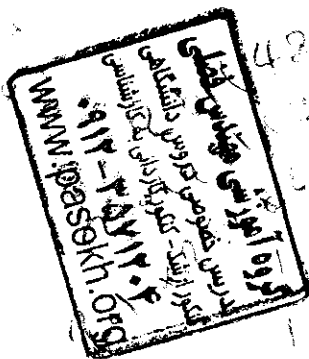 گروه آموزشی مهندس فضلی
تدریس خصوصی دروس دانشگاهی
کنکور ارشد - کنکور کاردانی به کارشناسی
۰۹۱۲-۳۵۷۱۲۰۴
www.ipasokh.org